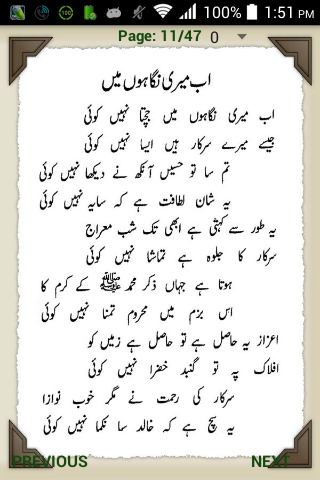 1:51 PM
Page: 11/47 0
اب میری نگاہوں میں
اب میری نگاہوں میں جچتا نہیں کوئی
جیسے میرے سرکار ہیں ایسا نہیں کوئی
تم سا تو حسیں آنکھ نے دیکھا نہیں کوئی
یہ شانِ لطافت ہے کہ سایہ نہیں کوئی
یہ طور سے کہتی ہے ابھی تک شب معراج
سرکار کا جلوہ ہے تماشا نہیں کوئی
ہوتا ہے جہاں ذکر محمد ﷺ کے کرم کا
اس بزم میں محروم تمنا نہیں کوئی
اعزاز یہ حاصل ہے تو حاصل ہے زمیں کو
افلاک پہ تو گنبد خضرا نہیں کوئی
سرکار کی رحمت نے مگر خوب نوازا
یہ سچ ہے کہ خالد سا نکما نہیں کوئی
PREVIOUS NEXT